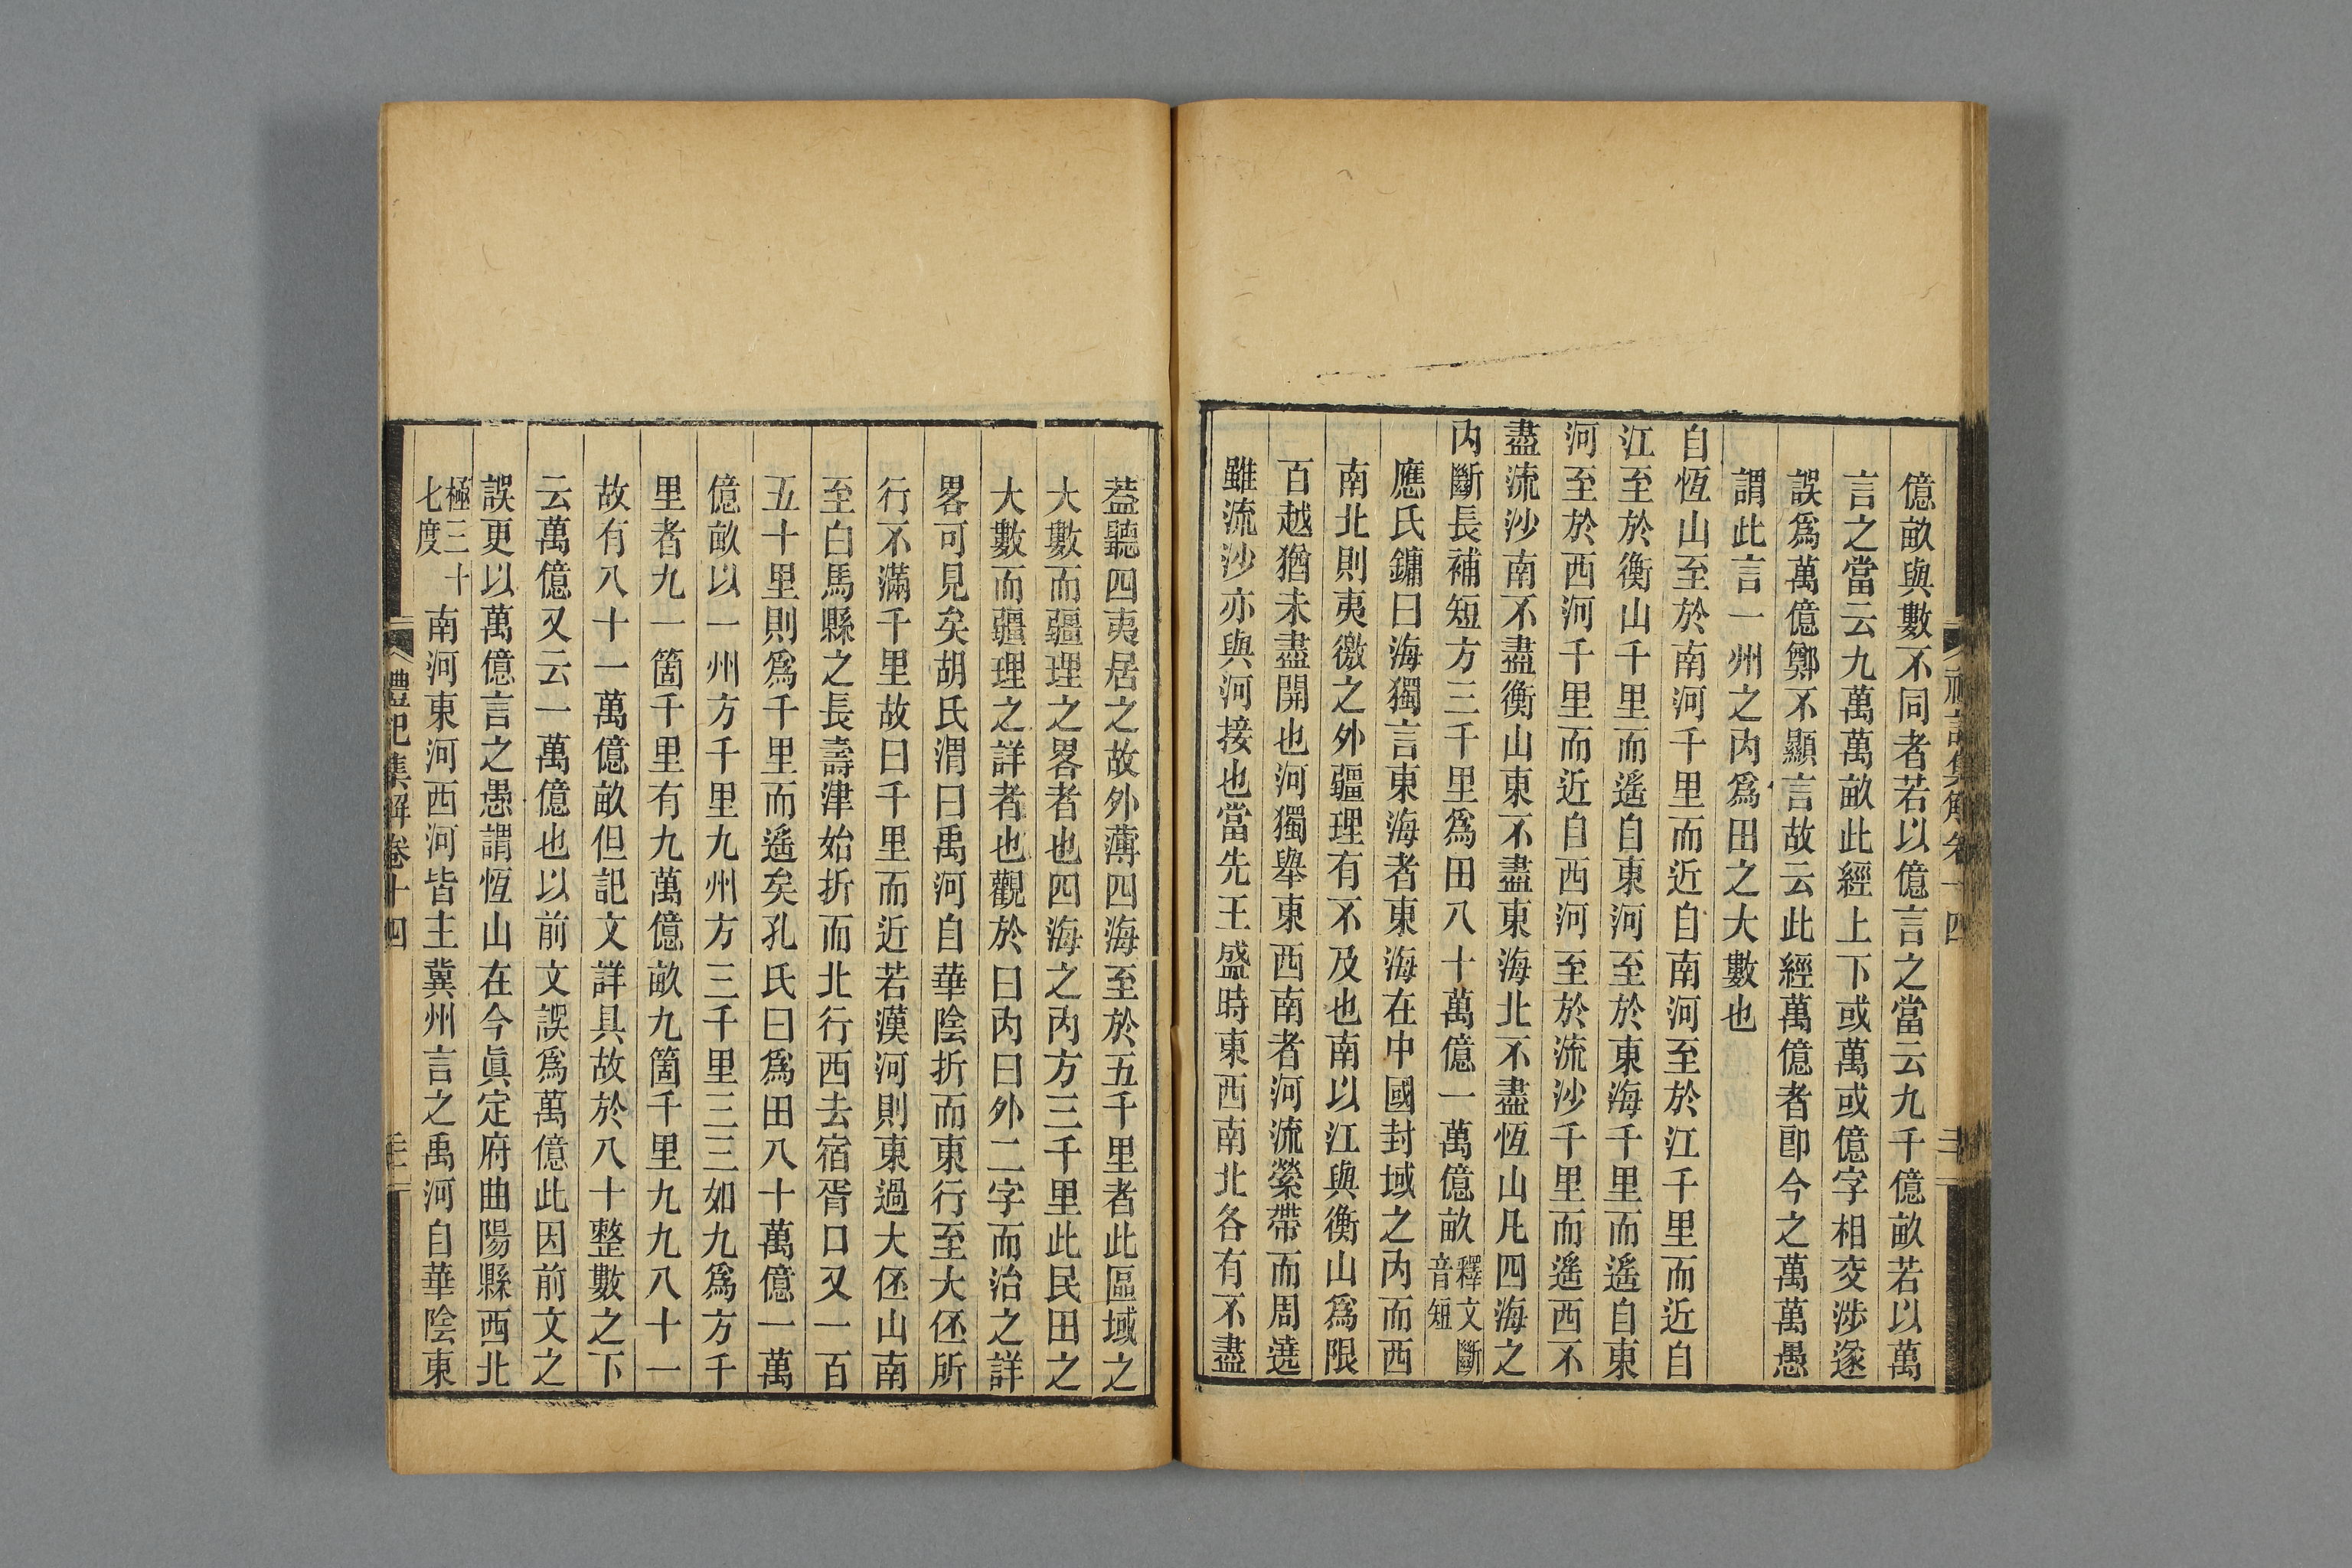 億畝與數不同者若以億言之當云九千億畝若以萬
言之當云九萬萬畝此經上下或萬或億字相交涉遂
誤爲萬億鄭不顯言故云此經萬億者卽今之萬萬愚
謂此言一州之内爲田之大數也
自恆山至於南河千里而近自南河至於江千里而近自
江至於衡山千里而遙自東河至於東海千里而遙自東
河至於西河千里而近自西河至於流沙千里而遙西不
盡流沙南不盡衡山東不盡東海北不盡恆山凡四海之
内斷長補短方三千里爲田八十萬億一萬億畝釋文斷音短
應氏鏞曰海獨言東海者東海在中國封域之内而西
南北則夷徼之外疆理有不及也南以江與衡山爲限
百越猶未盡開也河獨舉東西南者河流縈帶而周遶
雖流沙亦與河接也當先王盛時東西南北各有不盡
葢聽四夷居之故外薄四海至於五千里者此區域之
大數而疆理之畧者也四海之内方三千里此民田之
大數而疆理之詳者也觀於曰内曰外二字而治之詳
畧可見矣胡氏渭曰禹河自華陰折而東行至大伾所
行不滿千里故曰千里而近若漢河則東過大伾山南
至白馬縣之長壽津始折而北行西去宿胥口又一百
五十里則爲千里而遙矣孔氏曰爲田八十萬億一萬
億畝以一州方千里九州方三千里三三如九爲方千
里者九一箇千里有九萬億畝九箇千里九九八十一
故有八十一萬億畝但記文詳具故於八十整數之下
云萬億又云一萬億也以前文誤爲萬億此因前文之
誤更以萬億言之愚謂恆山在今眞定府曲陽縣西北
極三十七度南河東河西河皆主冀州言之禹河自華陰東
禮記集解卷十四